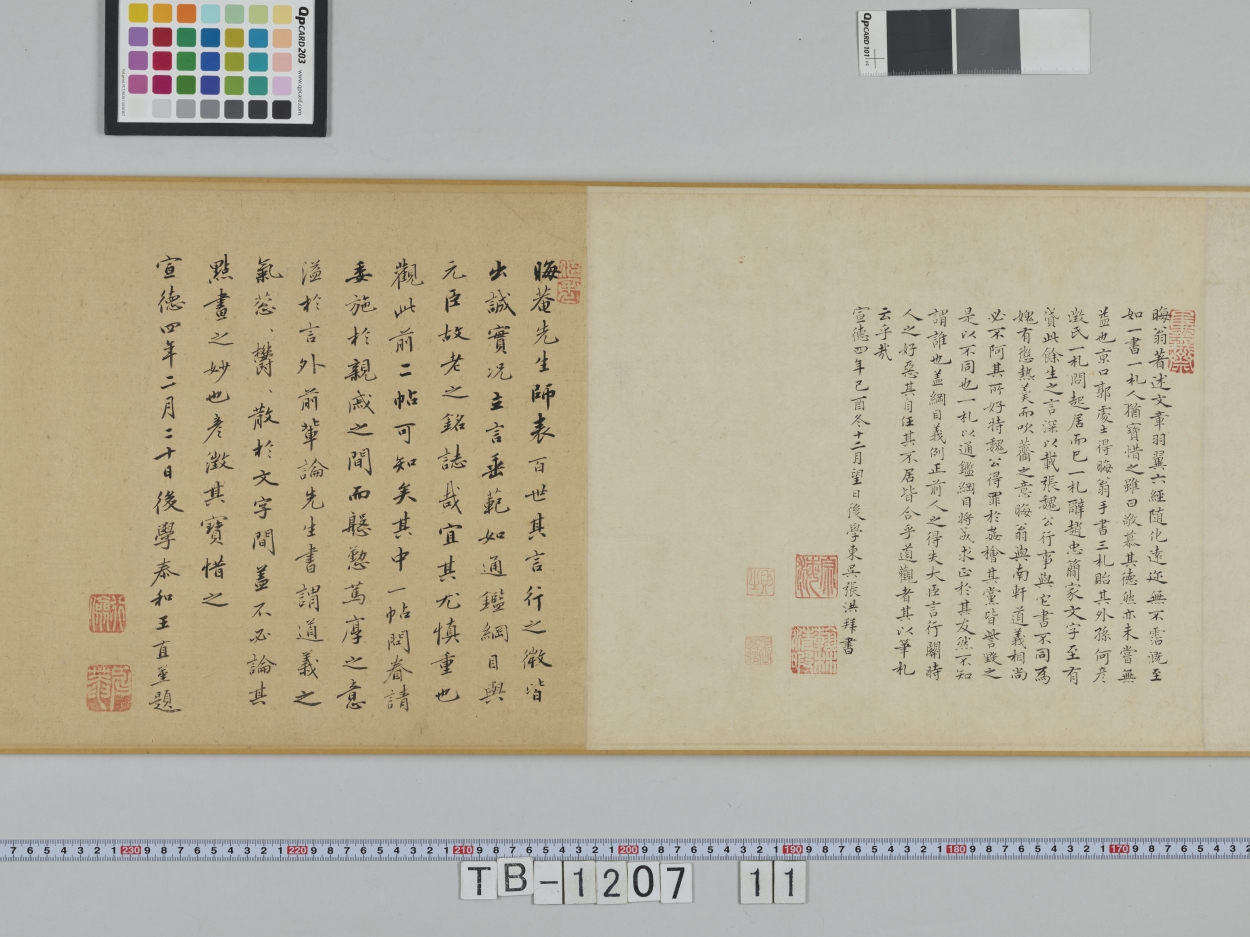 晦翁著述文章羽翼六經隨化遠迩無不霑溉至
如一書一札人猶寶惜之雖曰敬慕其德然亦未嘗無
益也京口郭處士得晦翁手書三札貽其外孫何彥
澂氏一札問起居而已一札辭趙忠簡家文字至有
濱此餘生之言深以載張魏公行事與它書不同為
媿有懲熱羹而吹虀之意晦翁與南軒道義相尚
必不阿其所好特魏公得罪於姦檜其黨皆訾毀之
是以不同也一札以通鑑綱目將成求正於其友然不知
謂誰也蓋綱目義例正前人之得失大臣言行關時
人之好惡其自任其不居皆合乎道觀者其以筆札
云乎哉
宣德四年己酉冬十二月望日後學東吳張洪拜書
晦菴先生師表百世其言行之微皆
出誠實况立言垂範如通鑑綱目與
元臣故老之銘誌哉宜其尤慎重也
觀此前二帖可知矣其中一帖問眷請
委施於親戚之間而慇懃篤厚之意
溢於言外前輩論先生書謂道義之
氣葱、欝、散於文字間蓋不必論其
點畫之妙也彥澂其寶惜之
宣德四年二月二十日後學泰和王直至題
QPCARD 203
www.qpcard.com
QPCARD 101
TB-1207 11
230
220
210
200
190
180
170